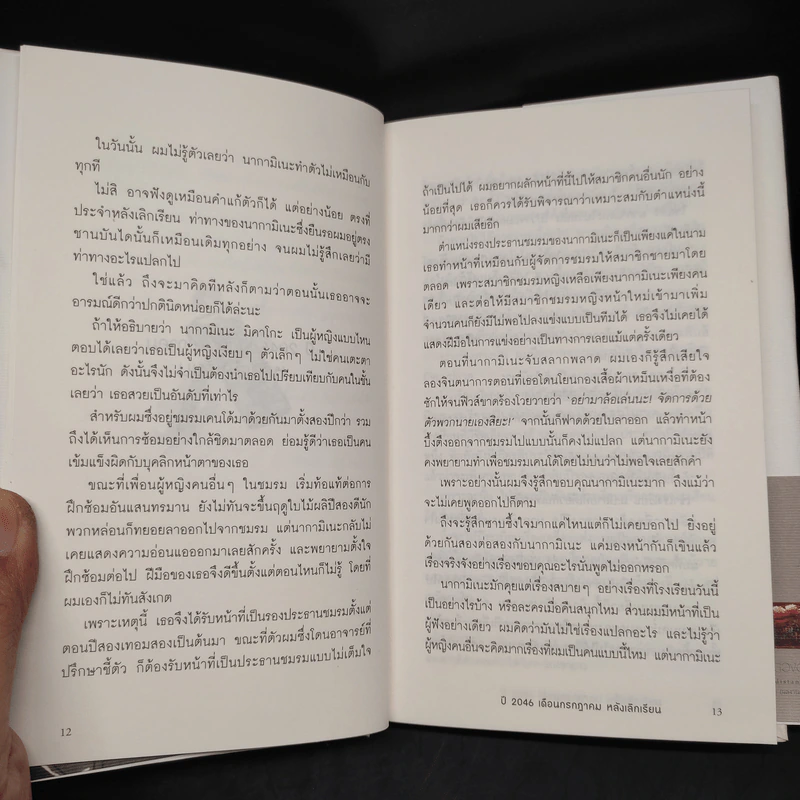 ในวันนั้น ผมไม่รู้ตัวเลยว่า นากามิเนะทำตัวไม่เหมือนกับ
ทุกที
ไม่สิ อาจฟังดูเหมือนคำแก้ตัวก็ได้ แต่อย่างน้อย ตรงที่
ประจำหลังเลิกเรียน ท่าทางของนากามิเนะซึ่งยืนรอผมอยู่ตรง
ชานบันไดนั้นก็เหมือนเดิมทุกอย่าง จนผมไม่รู้สึกเลยว่ามี
ท่าทางอะไรแปลกไป
ใช่แล้ว ถึงจะมาคิดทีหลังก็ตามว่าตอนนั้นเธออาจจะ
อารมณ์ดีกว่าปกตินิดหน่อยก็ได้ล่ะนะ
ถ้าให้อธิบายว่า นากามิเนะ มิคาโกะ เป็นผู้หญิงแบบไหน
ตอบได้เลยว่าเธอเป็นผู้หญิงเงียบๆ ตัวเล็กๆ ไม่ใช่คนเตะตา
อะไรนัก ดังนั้นจึงไม่จำเป็นต้องนำเธอไปเปรียบเทียบกับคนในชั้น
เลยว่า เธอสวยเป็นอันดับที่เท่าไร
สำหรับผมซึ่งอยู่ชมรมเคนโด้มาด้วยกันมาตั้งสองปีกว่า รวม
ถึงได้เห็นการซ้อมอย่างใกล้ชิดมาตลอด ย่อมรู้ดีว่าเธอเป็นคน
เข้มแข็งผิดกับบุคลิกหน้าตาของเธอ
ขณะที่เพื่อนผู้หญิงคนอื่นๆ ในชมรม เริ่มท้อแท้ต่อการ
ฝึกซ้อมอันแสนทรมาน ยังไม่ทันจะขึ้นฤดูใบไม้ผลิปีสองดีนัก
พวกหล่อนก็ทยอยลาออกไปจากชมรม แต่นากามิเนะกลับไม่
เคยแสดงความอ่อนแอออกมาเลยสักครั้ง และพยายามตั้งใจ
ฝึกซ้อมต่อไป ฝีมือของเธอจึงดีขึ้นตั้งแต่ตอนไหนก็ไม่รู้ โดยที่
ผมเองก็ไม่ทันสังเกต
เพราะเหตุนี้ เธอจึงได้รับหน้าที่เป็นรองประธานชมรมตั้งแต่
ตอนปีสองเทอมสองเป็นต้นมา ขณะที่ตัวผมซึ่งโดนอาจารย์ที่
ปรึกษาชี้ตัว ก็ต้องรับหน้าที่เป็นประธานชมรมแบบไม่เต็มใจ
12
ถ้าเป็นไปได้ ผมอยากผลักหน้าที่นี้ไปให้สมาชิกคนอื่นนัก อย่าง
น้อยที่สุด เธอก็ควรได้รับพิจารณาว่าเหมาะสมกับตำแหน่งนี้
มากกว่าผมเสียอีก
ตำแหน่งรองประธานชมรมของนากามิเนะก็เป็นเพียงแค่ในนาม
เธอทำหน้าที่เหมือนกับผู้จัดการชมรมให้สมาชิกชายมาโดย
ตลอด เพราะสมาชิกชมรมหญิงเหลือเพียงนากามิเนะเพียงคน
เดียว และต่อให้มีสมาชิกชมรมหญิงหน้าใหม่เข้ามาเพิ่ม
จำนวนคนก็ยังมีไม่พอไปลงแข่งแบบเป็นทีมได้ เธอจึงไม่เคยได้
แสดงฝีมือในการแข่งอย่างเป็นทางการเลยแม้แต่ครั้งเดียว
ตอนที่นากามิเนะจับสลากพลาด ผมเองก็รู้สึกเสียใจ
ลองจินตนาการตอนที่เธอโดนโยนกองเสื้อผ้าเหม็นเหงื่อที่ต้อง
ซักให้จนฟิวส์ขาดร้องโวยวายว่า ‘อย่ามาล้อเล่นนะ! จัดการด้วย
ตัวพวกนายเองสิยะ!’ จากนั้นก็ฟาดด้วยใบลาออก แล้วทำหน้า
บึ้งตึงออกจากชมรมไปแบบนั้นก็คงไม่แปลก แต่นากามิเนะยัง
คงพยายามทำเพื่อชมรมเคนโด้โดยไม่บ่นว่าไม่พอใจเลยสักคำ
เพราะอย่างนั้นผมจึงรู้สึกขอบคุณนากามิเนะมาก ถึงแม้ว่า
จะไม่เคยพูดออกไปก็ตาม
ถึงจะรู้สึกซาบซึ้งใจมากแค่ไหนแต่ก็ไม่เคยบอกไป ยิ่งอยู่
ด้วยกันสองต่อสองกับนากามิเนะ แค่มองหน้ากันก็เขินแล้ว
เรื่องจริงจังอย่างเรื่องขอบคุณอะไรนั่นพูดไม่ออกหรอก
นากามิเนะมักคุยแต่เรื่องสบายๆ อย่างเรื่องที่โรงเรียนวันนี้
เป็นอย่างไรบ้าง หรือละครเมื่อคืนสนุกไหม ส่วนผมมีหน้าที่เป็น
ผู้ฟังอย่างเดียว ผมคิดว่ามันไม่ใช่เรื่องแปลกอะไร และไม่รู้ว่า
ผู้หญิงคนอื่นจะคิดมากเรื่องที่ผมเป็นคนแบบนี้ไหม แต่นากามิเนะ
ปี 2046 เดือนกรกฎาคม หลังเลิกเรียน 13